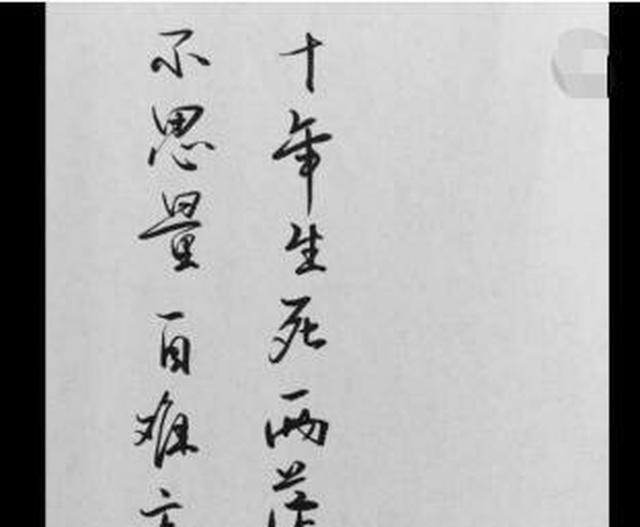 十年生死两茫
不思量自难